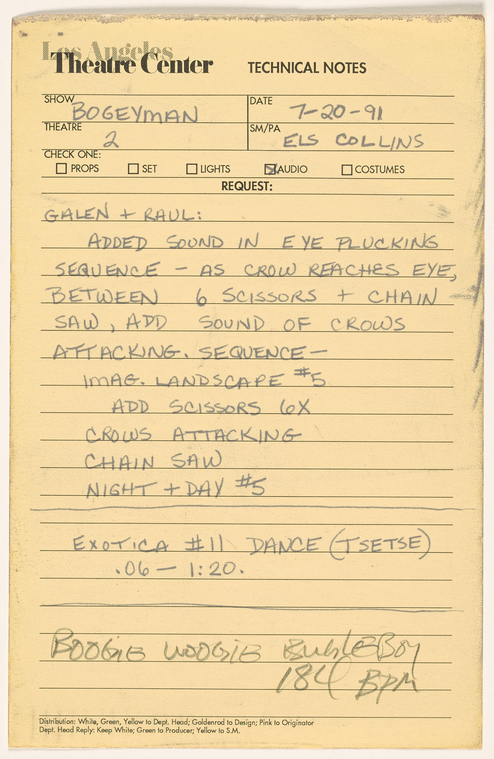 Los Angeles
Theatre Center TECHNICAL NOTES
SHOW BOGEYMAN DATE 7-20-91
THEATRE 2 SM/PA ELS COLLINS
CHECK ONE:
PROPS SET LIGHTS AUDIO COSTUMES
REQUEST:
GALEN + RAUL:
ADDED SOUND IN EYE PLUCKING
SEQUENCE - AS CROW REACHES EYE,
BETWEEN 6 SCISSORS + CHAIN
SAW, ADD SOUND OF CROWS
ATTACKING. SEQUENCE -
IMAG. LANDSCAPE #5
ADD SCISSORS 6X
CROWS ATTACKING
CHAIN SAW
NIGHT + DAY #5
EXOTICA #11 DANCE (TSETSE)
.06 - 1:20.
BOOGIE WOOGIE BUGLE BOY
184 BPM
Distribution: White, Green, Yellow to Dept. Head; Goldenrod to Design; Pink to Originator
Dept. Head Reply: Keep White; Green to Producer; Yellow to S.M.